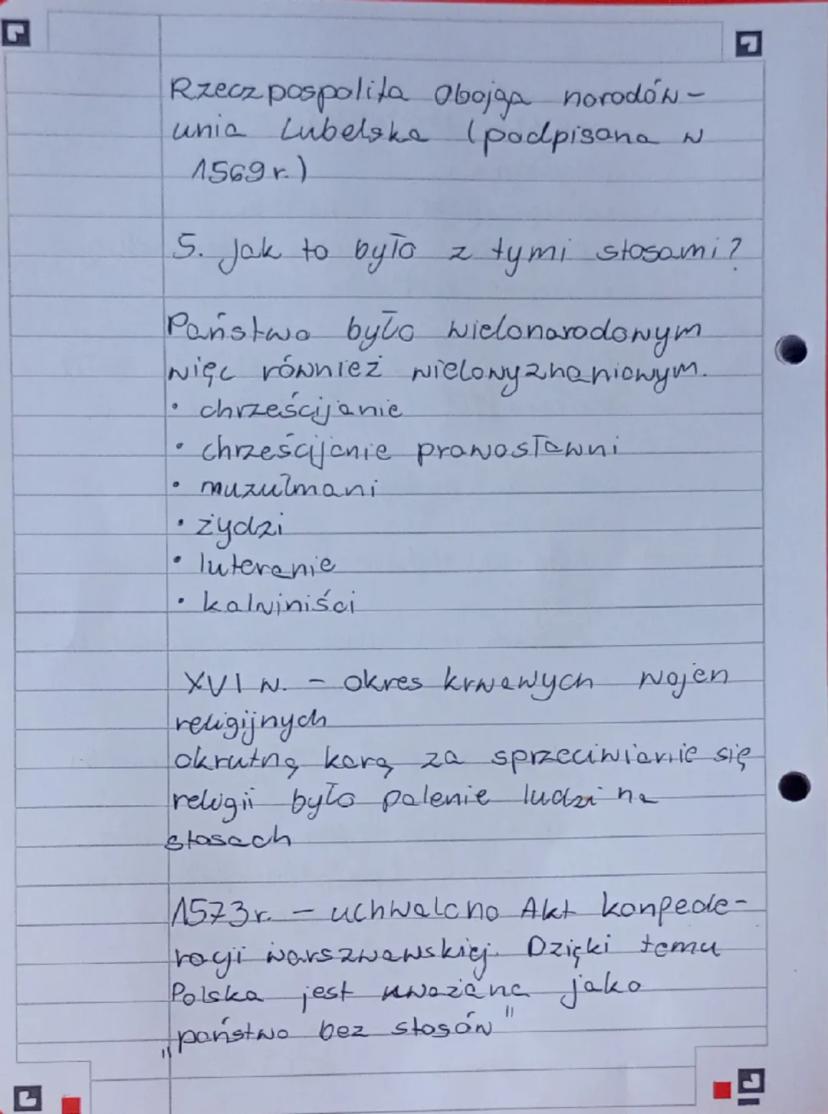 Rzeczpospolita Obojga narodów -
unia Lubelska (podpisana w
1569 r.)
5. Jak to było z tymi stosami?
Państwo było wielonarodowym
więc również wielowyznaniowym.
• chrześcijanie
• chrześcijanie prawosławni
• muzułmani
• żydzi
• luteranie
• kalwiniści
XVI w. - okres krwawych wojen
religijnych
okrutną karą za sprzeciwianie się
religii było palenie ludzi na
stosach
1573 r. - uchwalono Akt konpede-
racji warszwawskiej. Dzięki temu
Polska jest uważana jako
"państwo bez stosów"